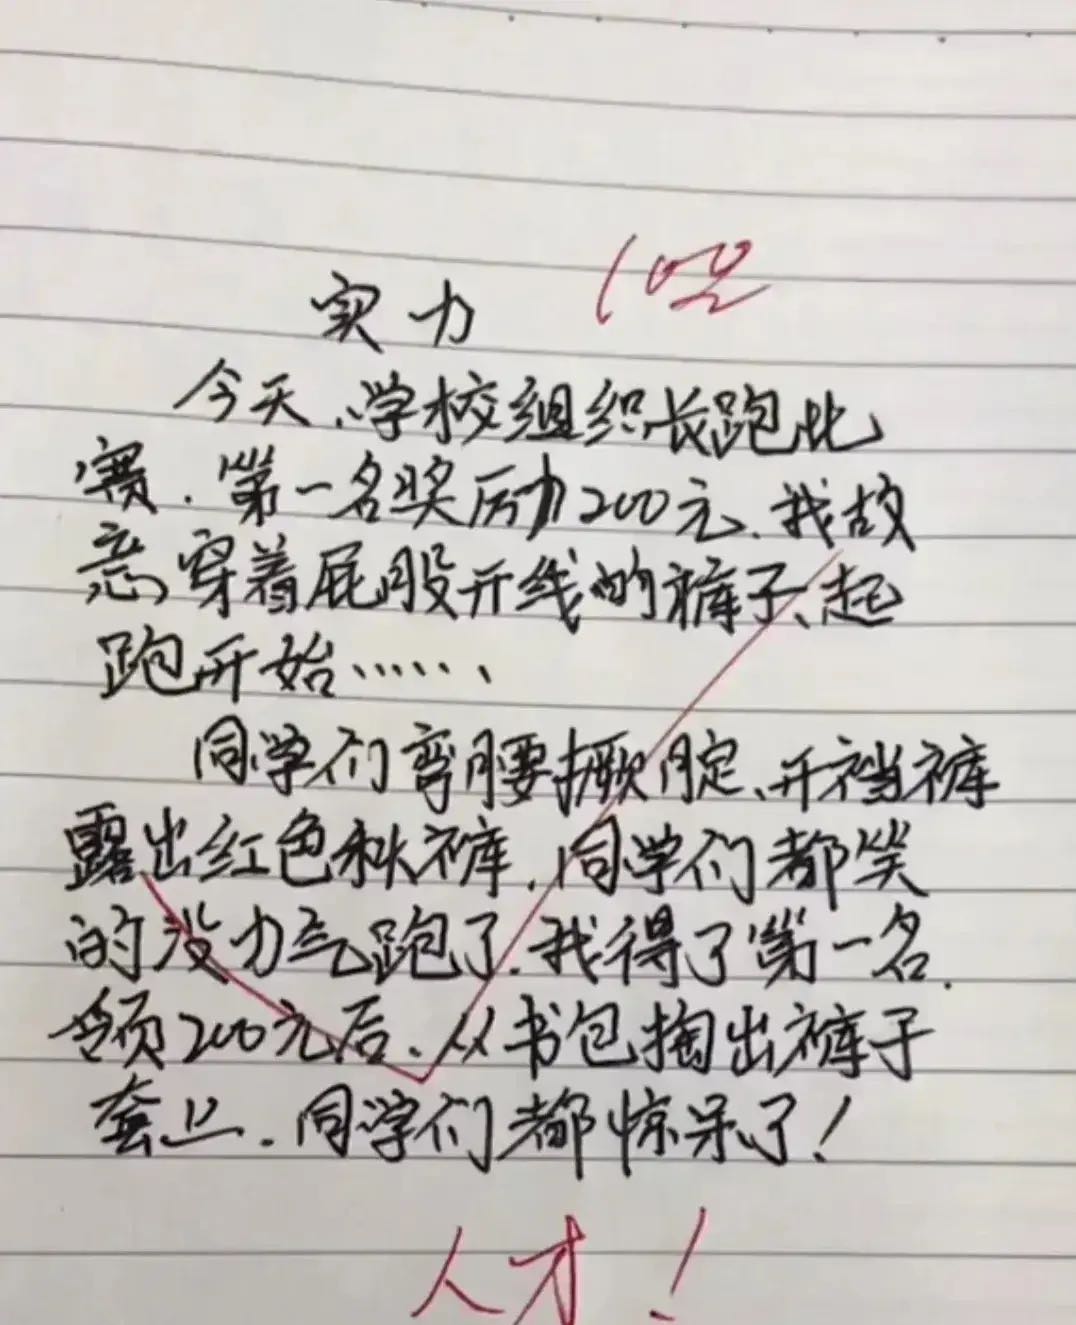 100
实力
今天，学校组织长跑比
赛，第一名奖励200元，我故
意穿着屁股开线的裤子，起
跑开始……
同学们弯腰撅腚，开裆裤
露出红色秋裤，同学们都笑
的没力气跑了，我得了第一名，
领200元后，从书包掏出裤子
套上，同学们都惊呆了！
人才！